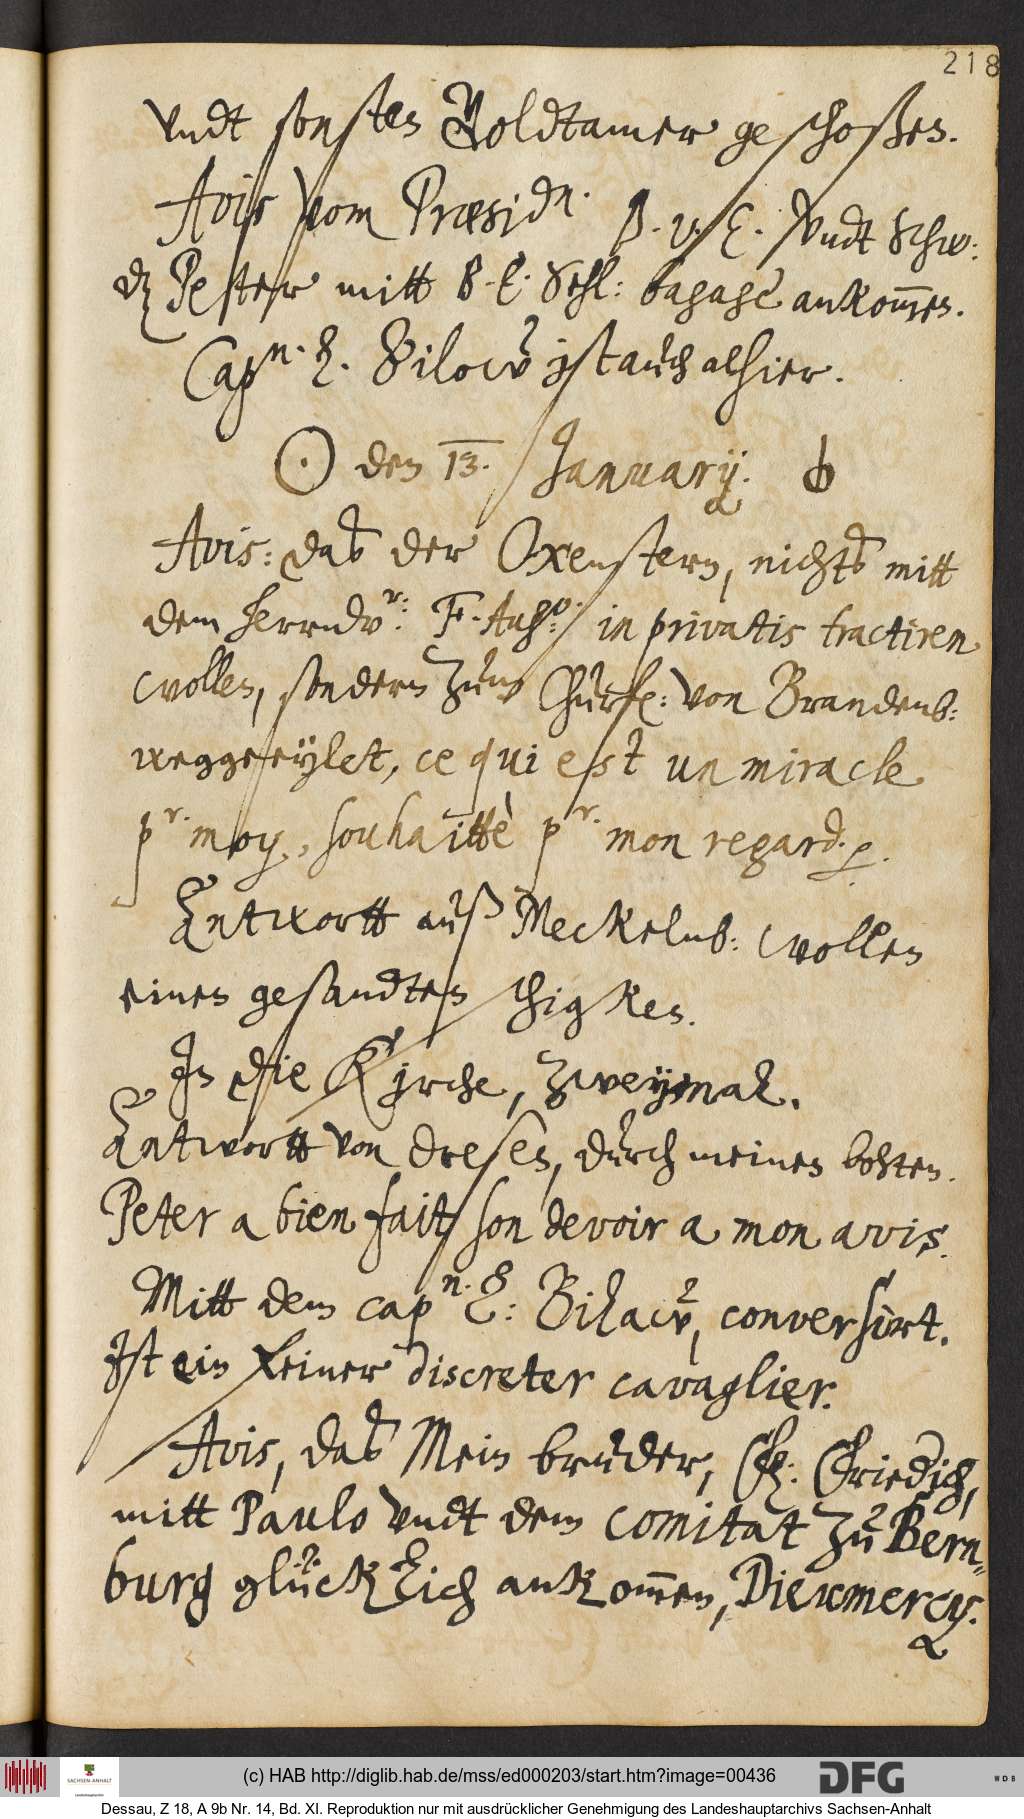 218
vndt sonsten Voldtamer geschoßen.
Avis vom Præsidn. B. v. E. vndt Schw:
dz Peter mitt B. E. Sehl: bagage ankommen.
Capn. E. Bilow ist auch alhier.
☉ den 13. January. ♄
Avis: das der Oxenstern, nichts mitt
dem herrndvr: F. Aug: in privatis tractiren
wollen, sondern zum Churf: von Brandenb:
weggeeylet, ce qui est un miracle
pr. moy, souhaittè pr. mon regard. p.
Entwortt auß Meckelnb: wollen
einen gesandten schigken.
In die Kirche, zweymal.
Entwortt von dresen, durch meinen bohten.
Peter a bien fait son devoir a mon avis.
Mitt dem capn. E: Bilaw, conversirt.
Ist ein feiner discreter cavaglier.
Avis, das Mein bruder, F: Friedich,
mitt Paulo vndt dem comitat zu Bern-
burg glücklich ankommen, Dieu mercy.
(c) HAB http://diglib.hab.de/mss/ed000203/start.htm?image=00436
SACHSEN-ANHALT
DFG
WDB
Dessau, Z 18, A 9b Nr. 14, Bd. XI. Reproduktion nur mit ausdrücklicher Genehmigung des Landeshauptarchivs Sachsen-Anhalt